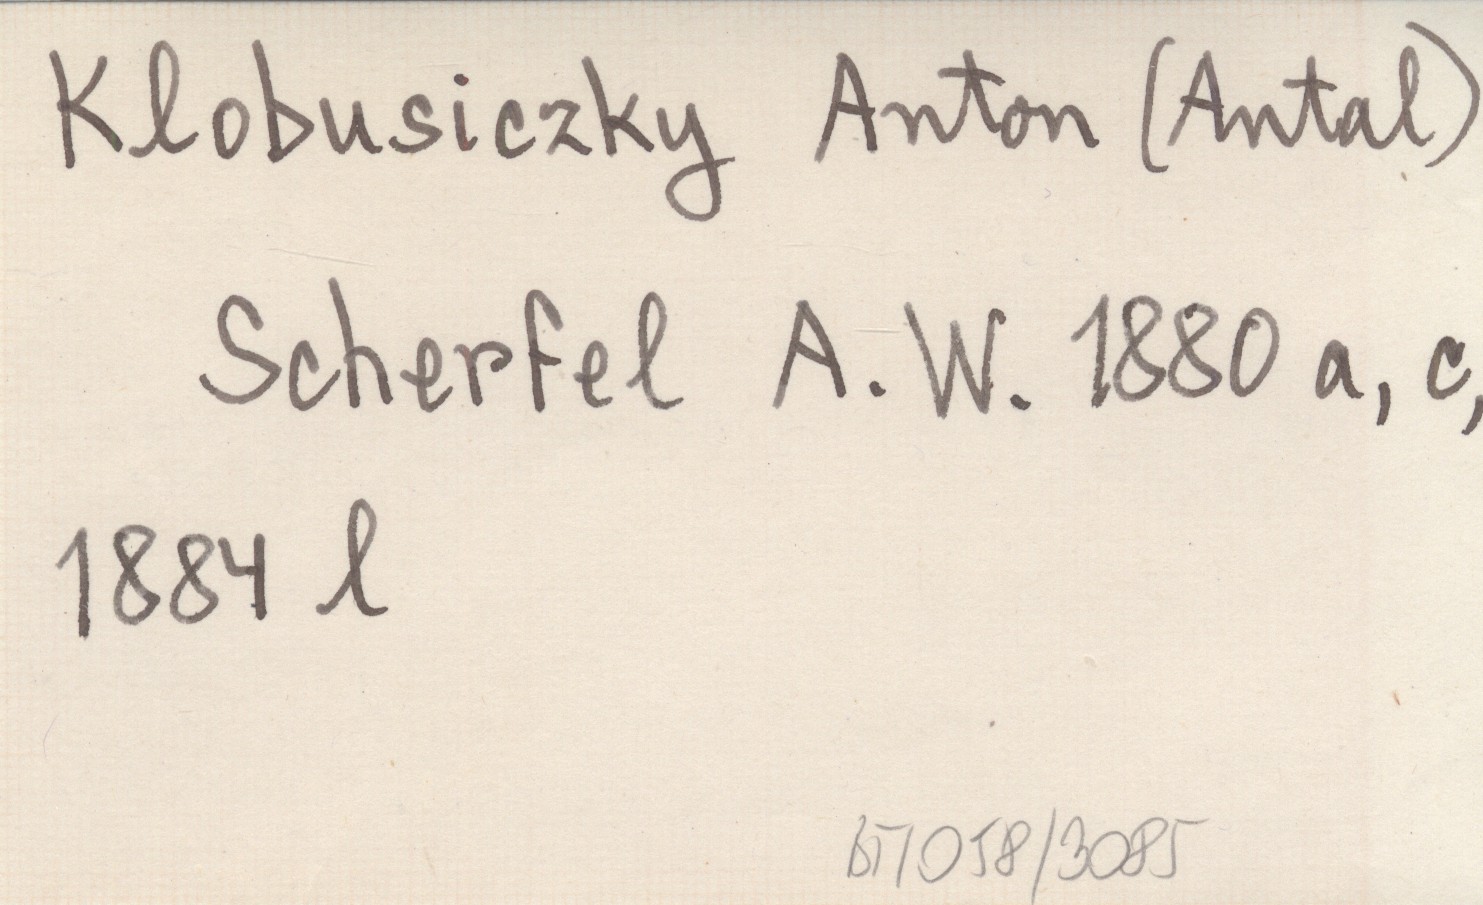 Klobusiczky Anton (Antal)
Scherfel A. W. 1880 a, c,
1884 l